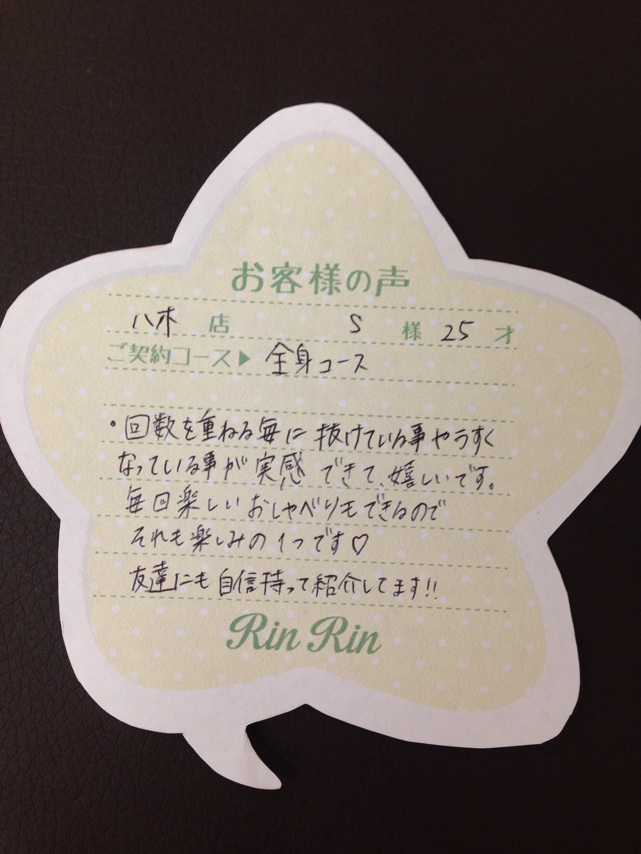 お客様の声
八木 店 S 様 25 才
ご契約コース▶ 全身コース
・回数を重ねる毎に 抜けている事やうすく
なっている事が 実感 できて、嬉しいです。
毎回楽しい おしゃべりもできるので
それも楽しみの1つです♡
友達にも 自信持って紹介してます!!
Rin Rin